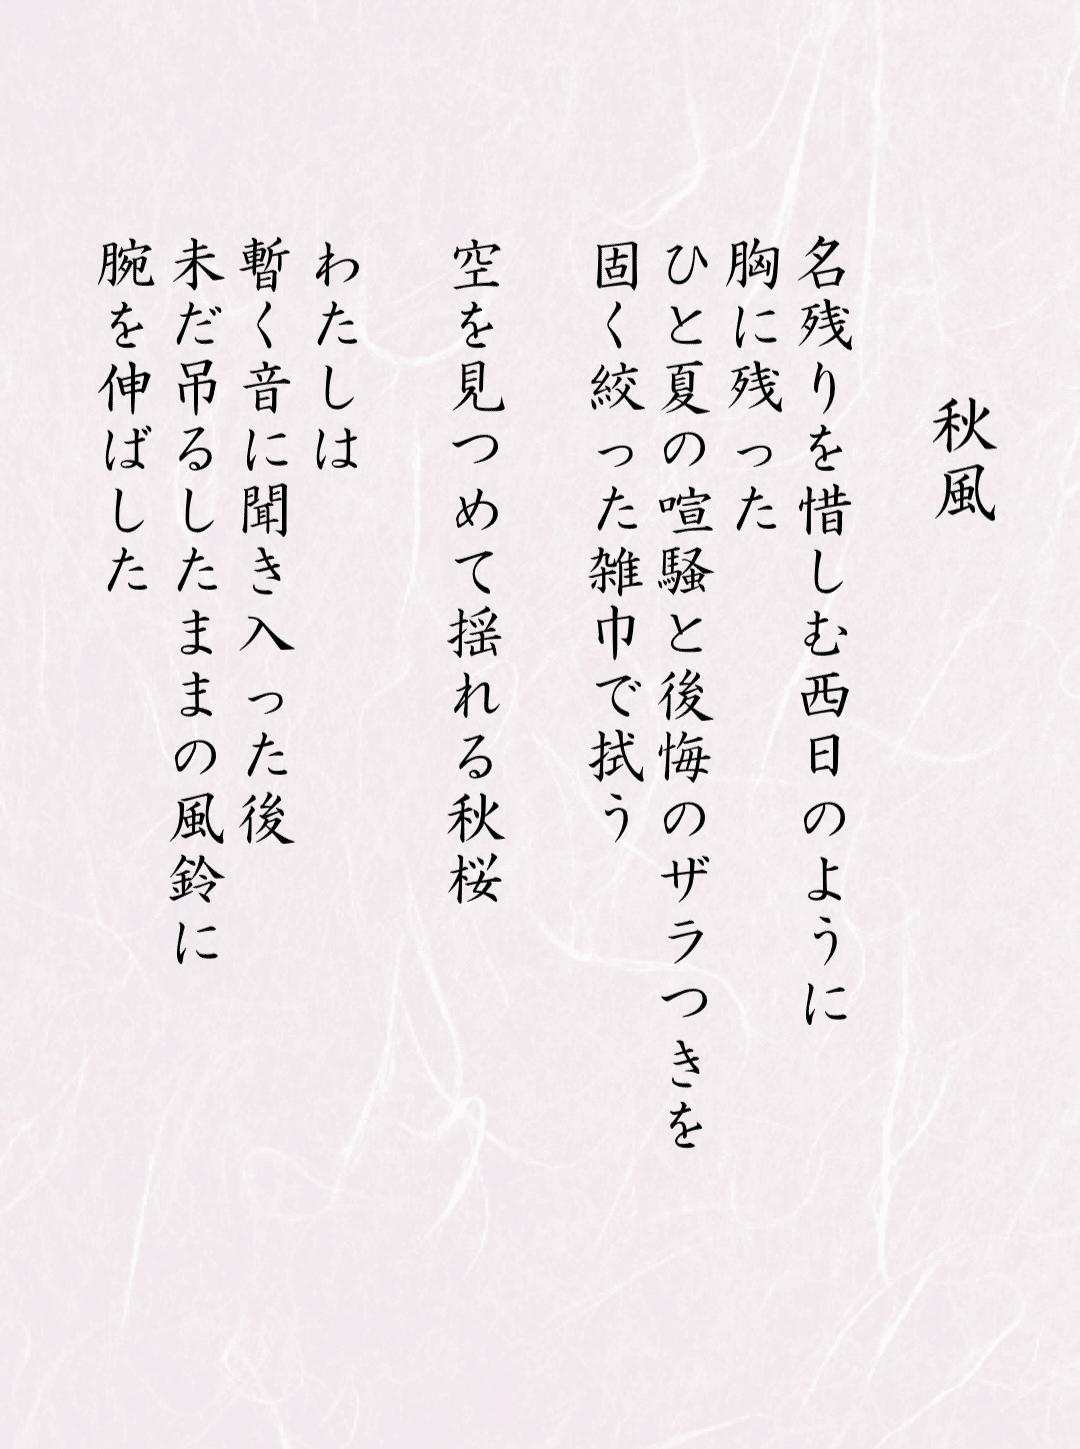 秋風
名残りを惜しむ西日のように
胸に残った
ひと夏の喧騒と後悔のザラつきを
固く絞った雑巾で拭う
空を見つめて揺れる秋桜
わたしは
暫く音に聞き入った後
未だ吊るしたままの風鈴に
腕を伸ばした